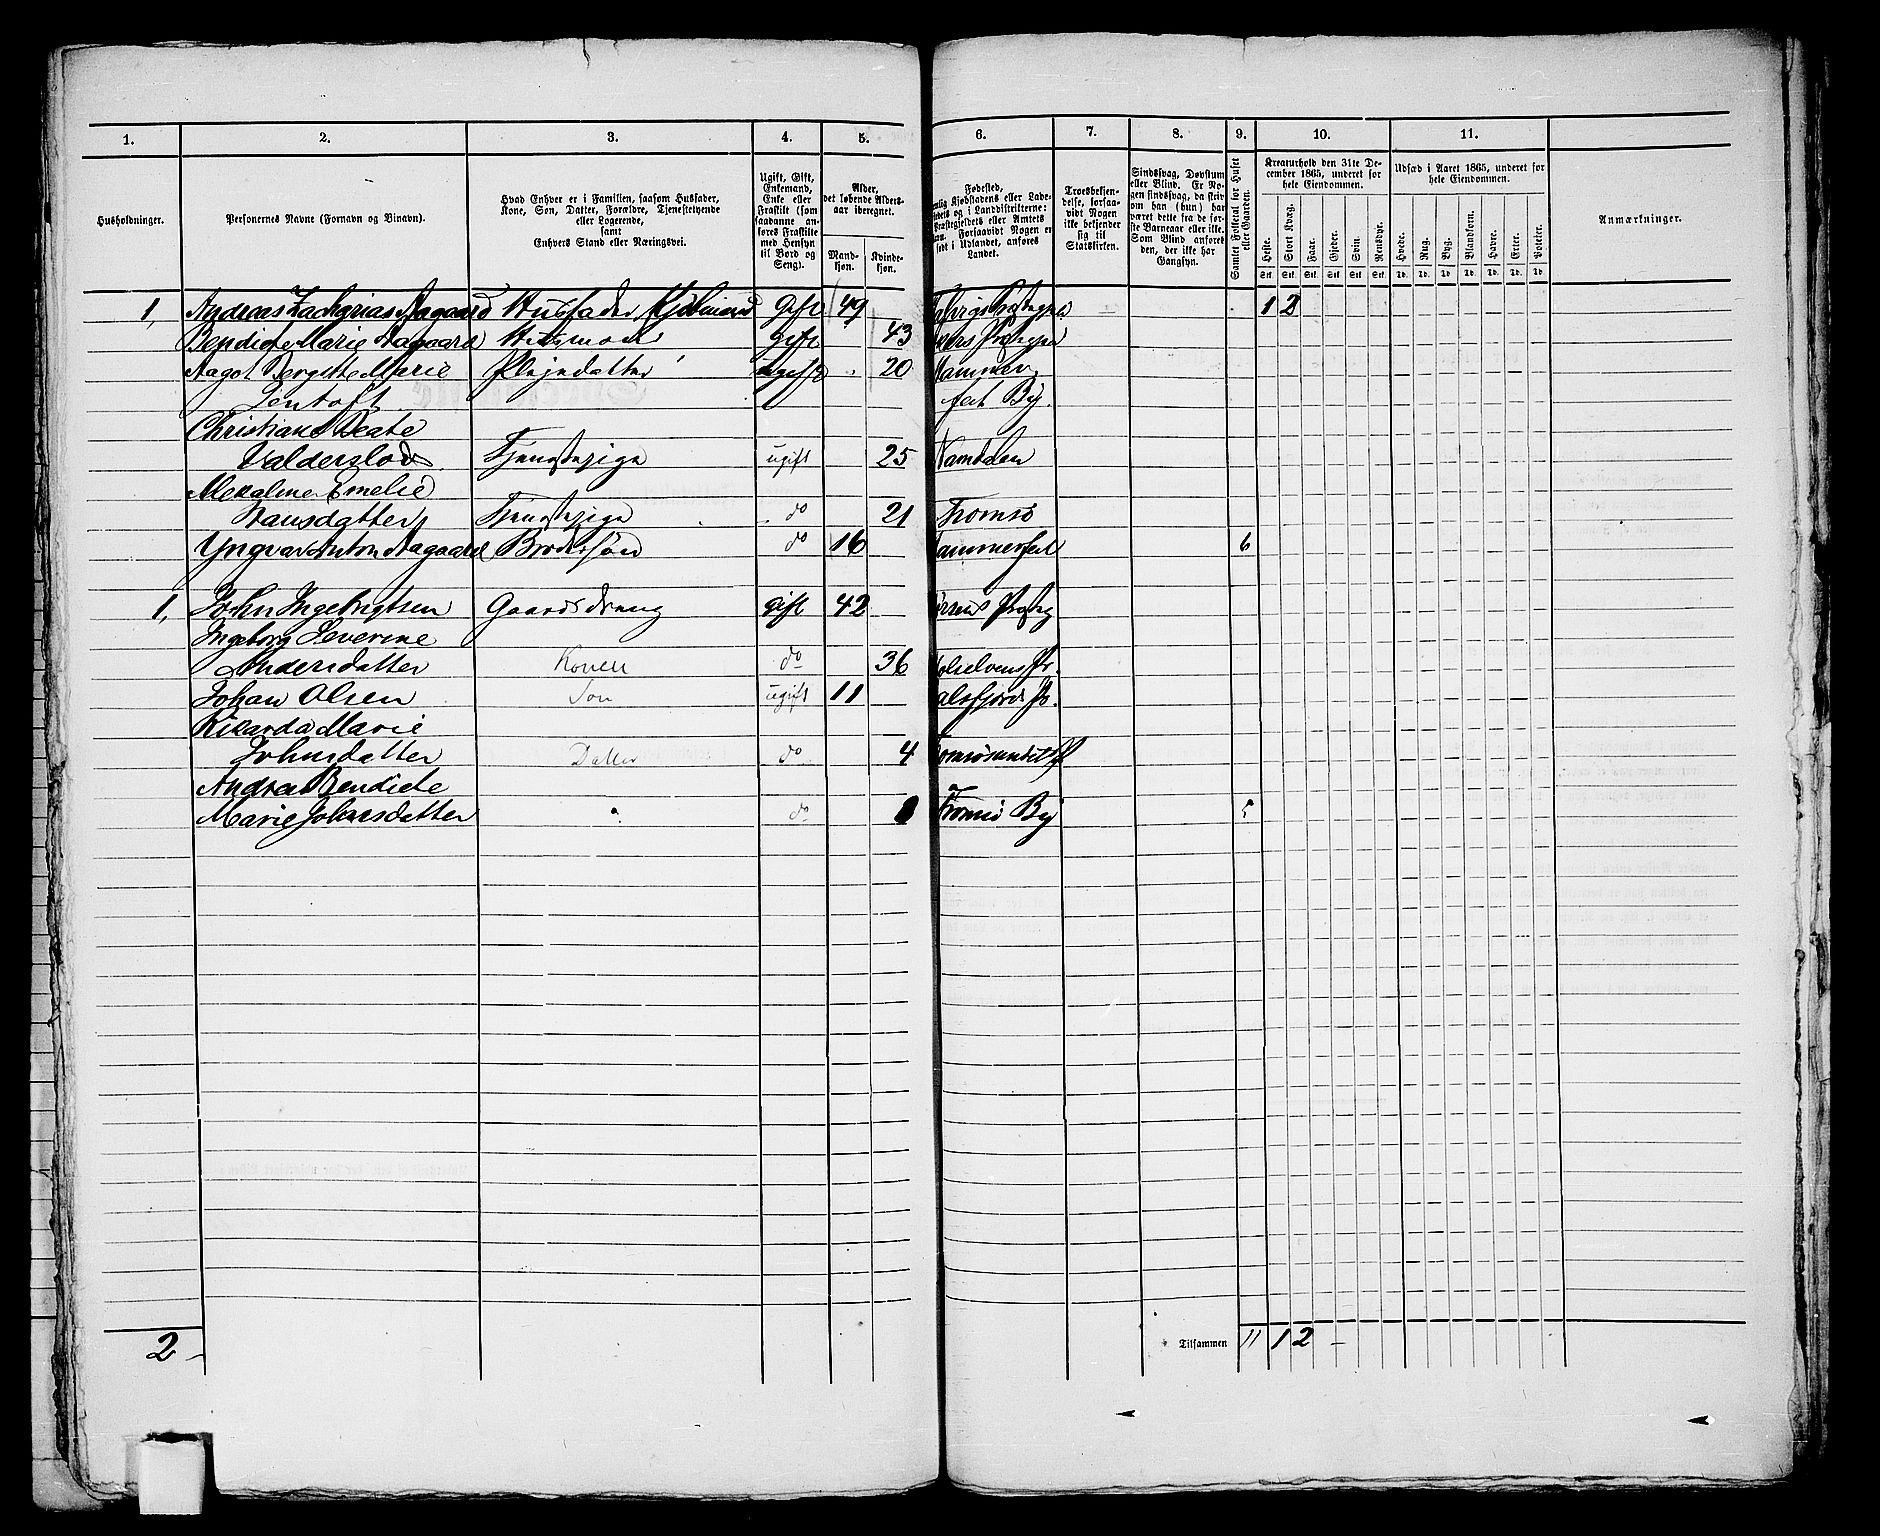 1. 2. 3. 4. 5. 6. 7. 8. 9. 10. 11.
Husholdninger.
Personernes Navne (Fornavn og Binavn).
Hvad Enhver er i Familien, saasom Husfader,
Kone, Søn, Datter, Forældre, Tjenestetyende
eller Logerende,
samt
Enhvers Stand eller Næringsvei.
Ugift, Gift,
Enkemand,
Enke eller
Fraskilt (som
saadanne an-
føres Fraskilte
med Hensyn
til Bord og
Seng).
Alder,
det løbende Alders-
aar iberegnet.
Mand-
kjøn.
Kvinde-
kjøn.
Fødested,
Kjøbstadens eller Lade-
og i Landdistrikterne:
Præstegjeldets eller Amtets
Forsaavidt Nogen er
født i Udlandet, anføres
Landet.
Troesbekjen-
delse, forsaa-
vidt Nogen
ikke bekjender
sig til
Statskirken.
Sindssvag, Døvstum
eller Blind. Er No-
gen sindssvag, da skriv
om han (hun) har
været dette fra de før-
ste Barneaar eller ei.
Som Blind anføres
den, der ikke har
Gangsyn.
Samlet Folketal for Huset
eller Gaarden.
Kreaturhold den 31te De-
cember 1865, underet for
hele Eiendommen.
Heste. Stort Kvæg. Faar. Gjeder. Svin. Rensdyr.
Stk. Stk. Stk. Stk. Stk. Stk.
Udsæd i Aaret 1865, underet for
hele Eiendommen.
Hvede. Rug. Byg. Blandkorn. Havre. Erter. Poteter.
Td. Td. Td. Td. Td. Td. Td.
Anmærkninger.
1, Andreas Zacharias Aagaard Husfader Kjøbmand Gift 49 1 2
Bendicte Marie Aagaard Husmoder gift 43
Aagot Bergitte Marie Plejedatter ugift 20 Hammer
Jentoft fest By.
Christiane Beate
Valderslod Tjenestepige ugift 25 Namdalen
Mekaline Emelie
Hansdatter Tjenestepige do 21 Tromsø
Yngvar Anton Aagaard Brodersøn do 16 Hammerfest 6
1, John Ingebrigtsen Gaardsdreng gift 42
Ingeborg Severine
Andersdatter Konen do 36
Johan Olsen Søn ugift 11 Balsfjord Pr.
Rikarda Marie
Johnsdatter Datter do 4 Tromsøsundet
Andrea Bendicte
Marie Johnsdatter " do 1 Tromsø By 5
2 Tilsammen 11 1 2 –